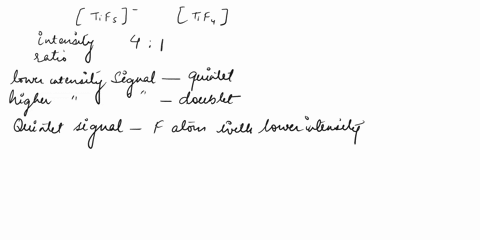 [TiF5]⁻ [TiF4]
intensity ratio 4 : 1
lower intensity Signal — quintet
higher " " — doublet
Quintet signal — F atom with lower intensity